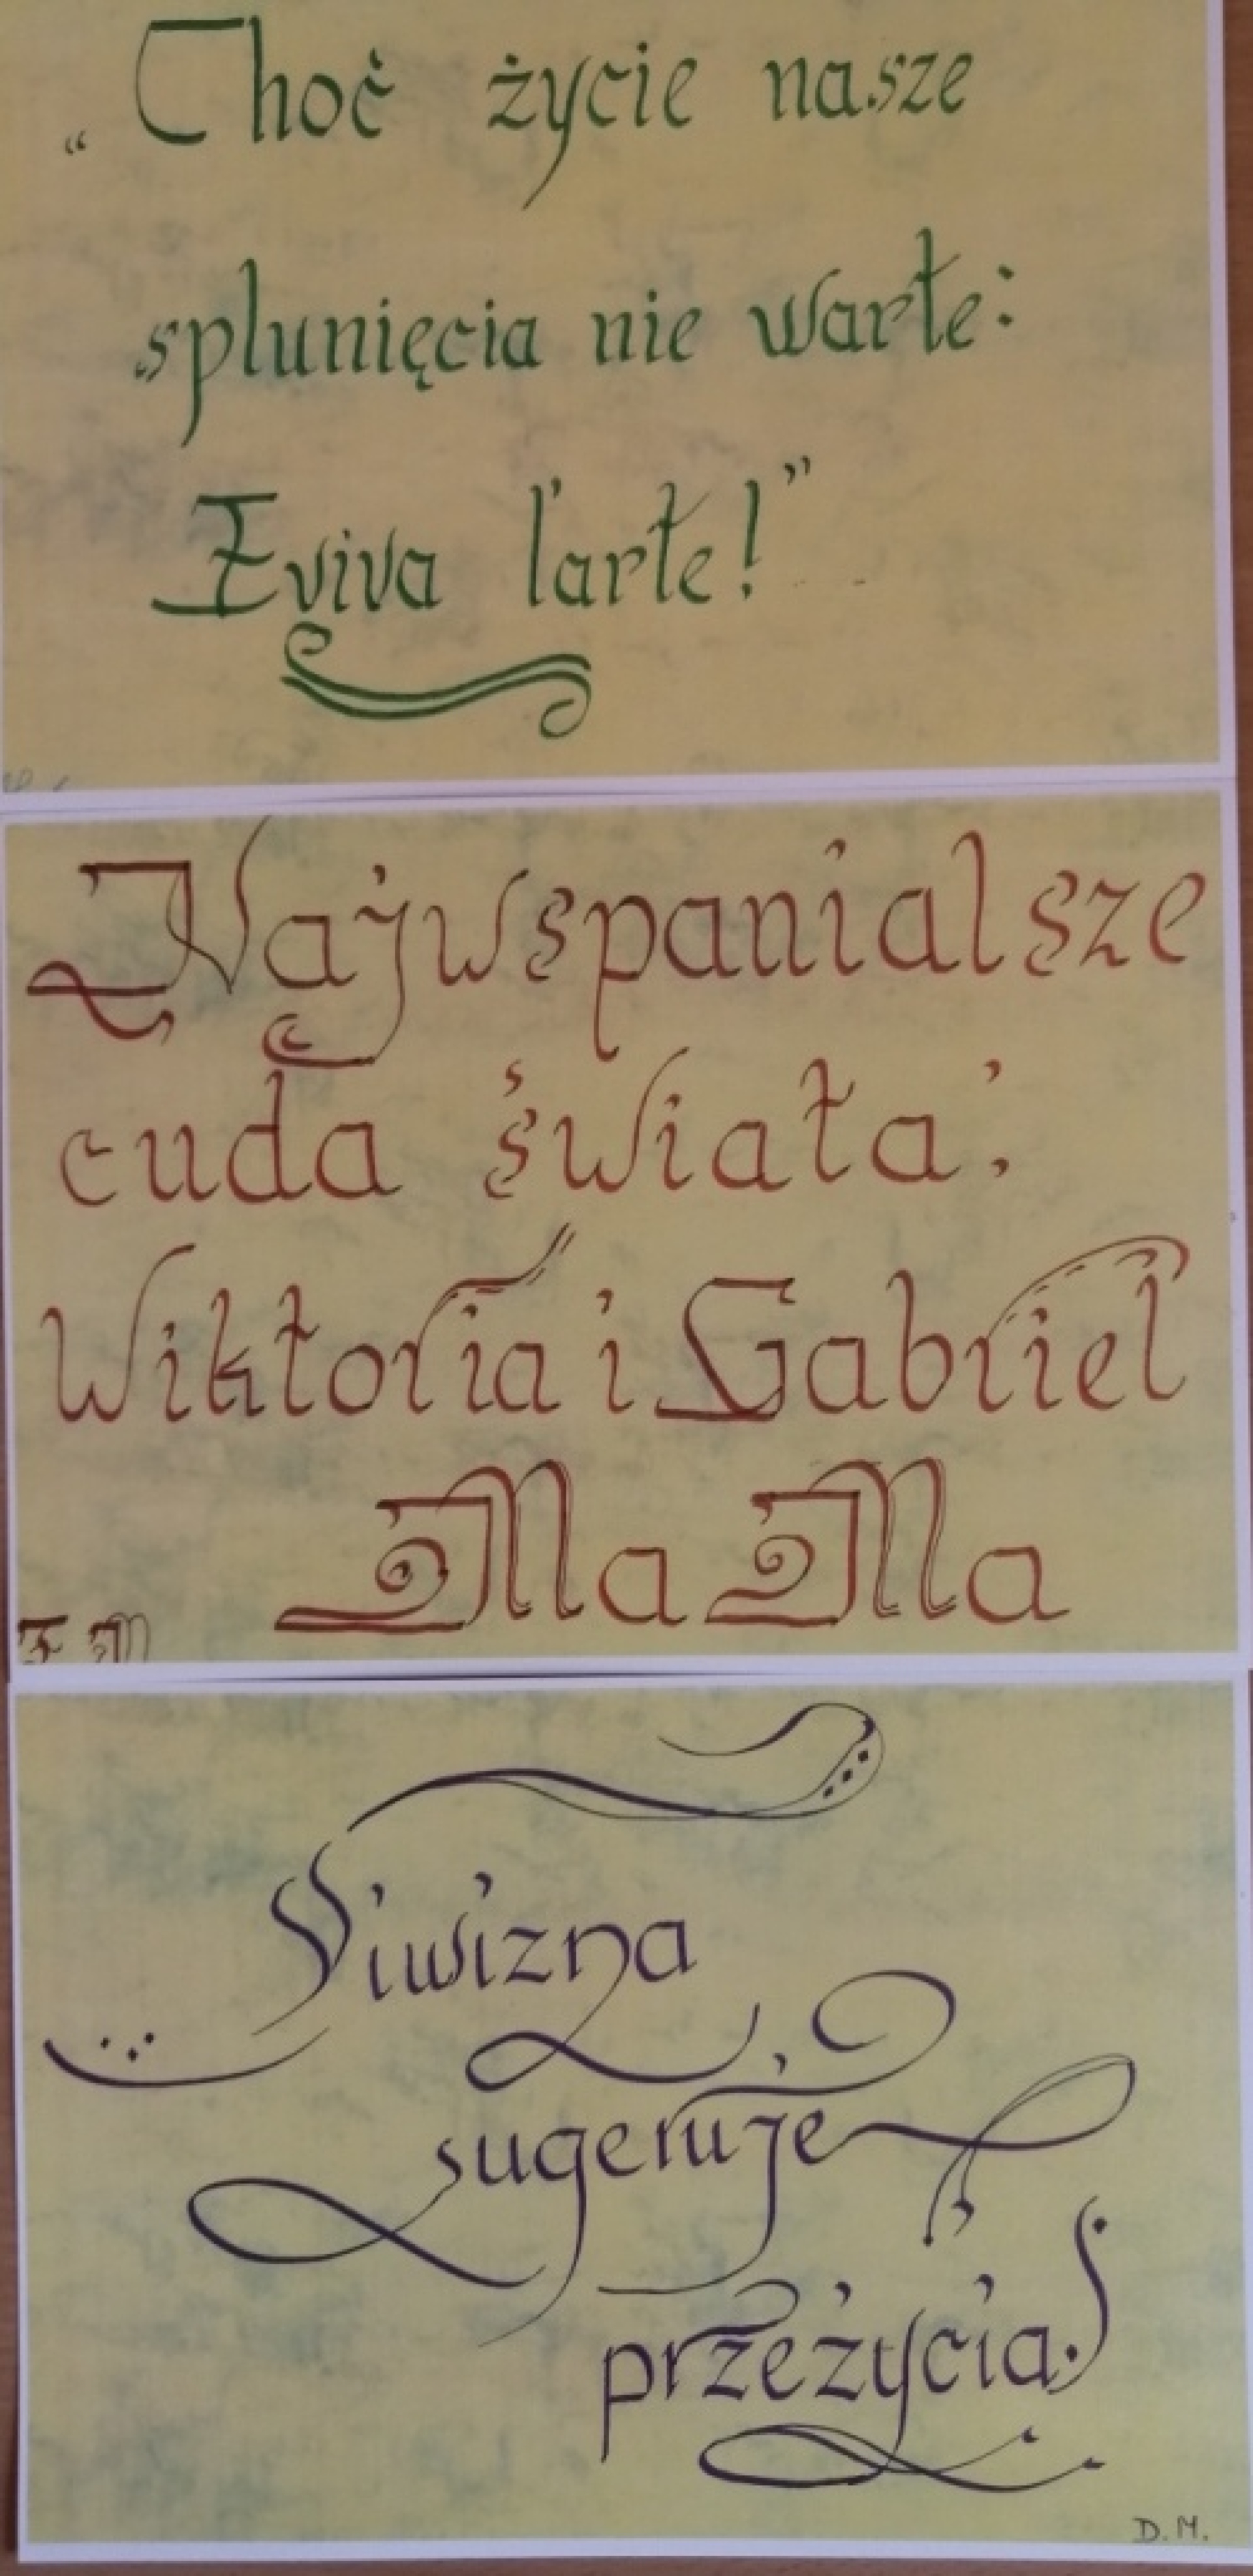 “Choć życie nasze
splunięcia nie warte:
Eviva l'arte!”
Najwspanialsze
cuda świata:
Wiktoria i Gabriel
MaMa
Siwizna
sugeruje
przeżycia!
D.M.